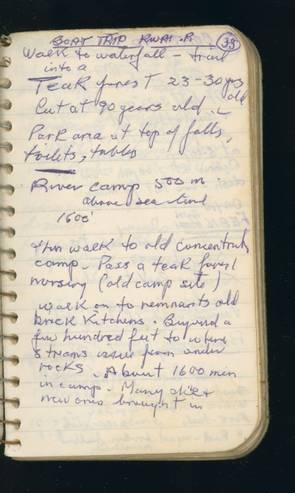 BOAT TRIP KWAI R. 38
Walk to waterfall – trail
into a
Teak forest 23-30 yrs old
Cut at 90 years old.
Park area at top of falls,
toilets, tables
River camp 500 m.
above sea level
1600'
walk to old concentration
camp. Pass a teak forest
nursery (old camp site)
walk on to remnants old
brick kitchens. Beyond a
few hundred feet to where
streams issue from under
rocks. About 1600 men
in camp. Many died &
new ones brought in